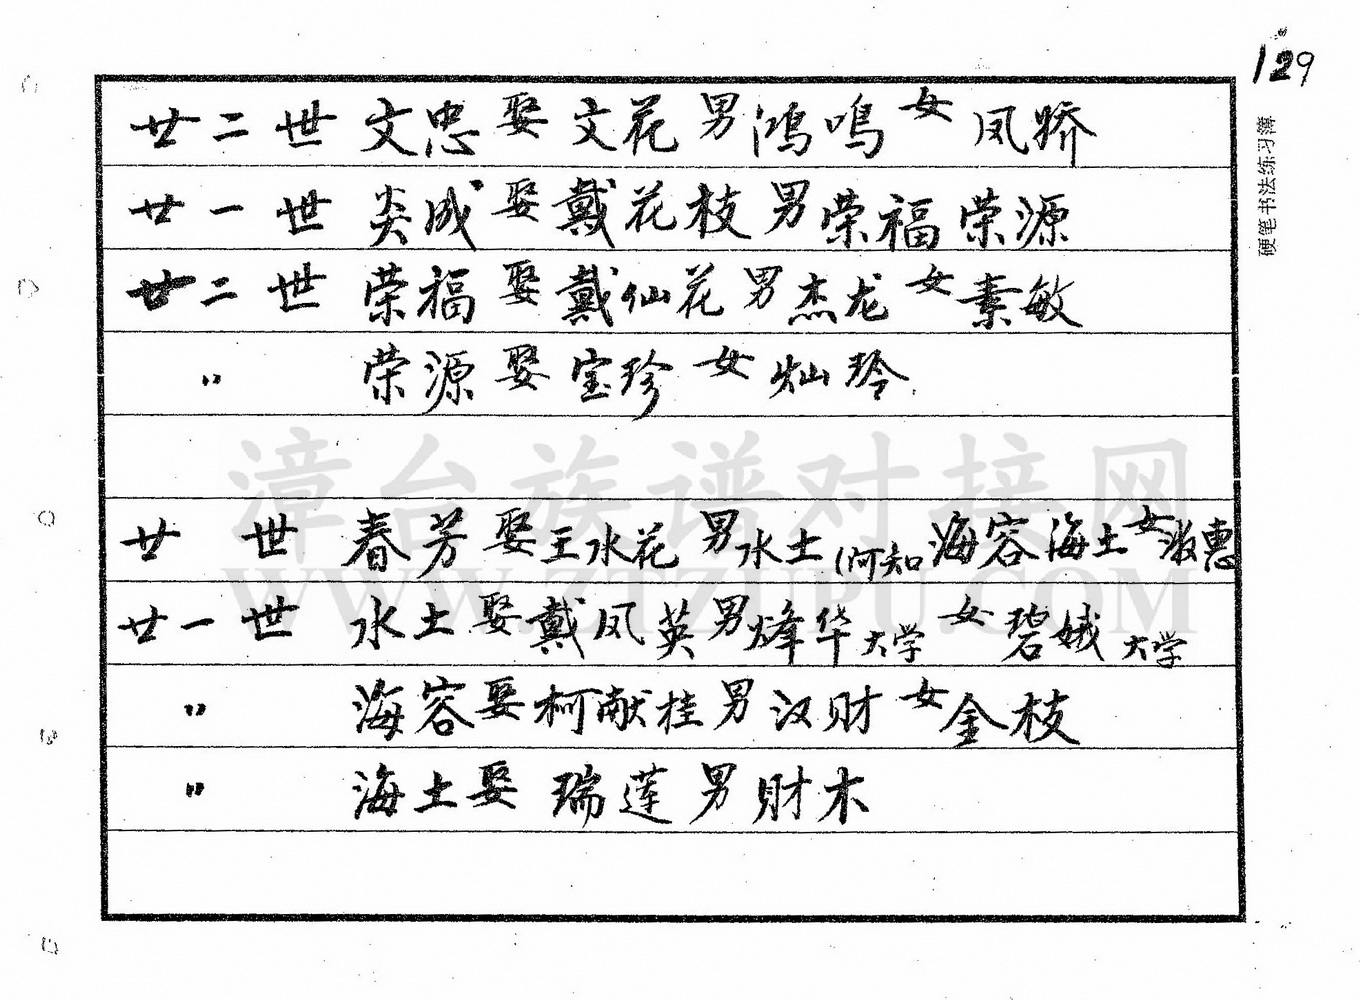 129
硬笔书法练习簿
廿二世 文忠 娶 文花 男 鸿鸣 女 凤骄
廿一世 炎成 娶 戴花枝 男 荣福 荣源
廿二世 荣福 娶 戴仙花 男 杰龙 女 素敏
〃 荣源 娶 宝珍 女 灿玲
廿 世 春芳 娶 王水花 男 水土 (何知 海容 海土 女 淑惠
廿一世 水土 娶 戴凤英 男 烽华 大学 女 碧娥 大学
〃 海容 娶 柯献桂 男 汉财 女 金枝
〃 海土 娶 瑞莲 男 財木
漳台族谱对接网
WWW.ZTZUPU.COM